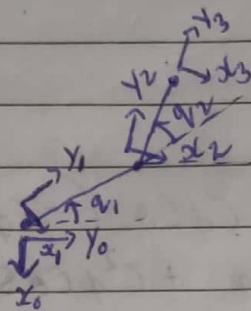 Y3
x3
Y2
q2
x2
Y1
q1
x1
Y0
x0